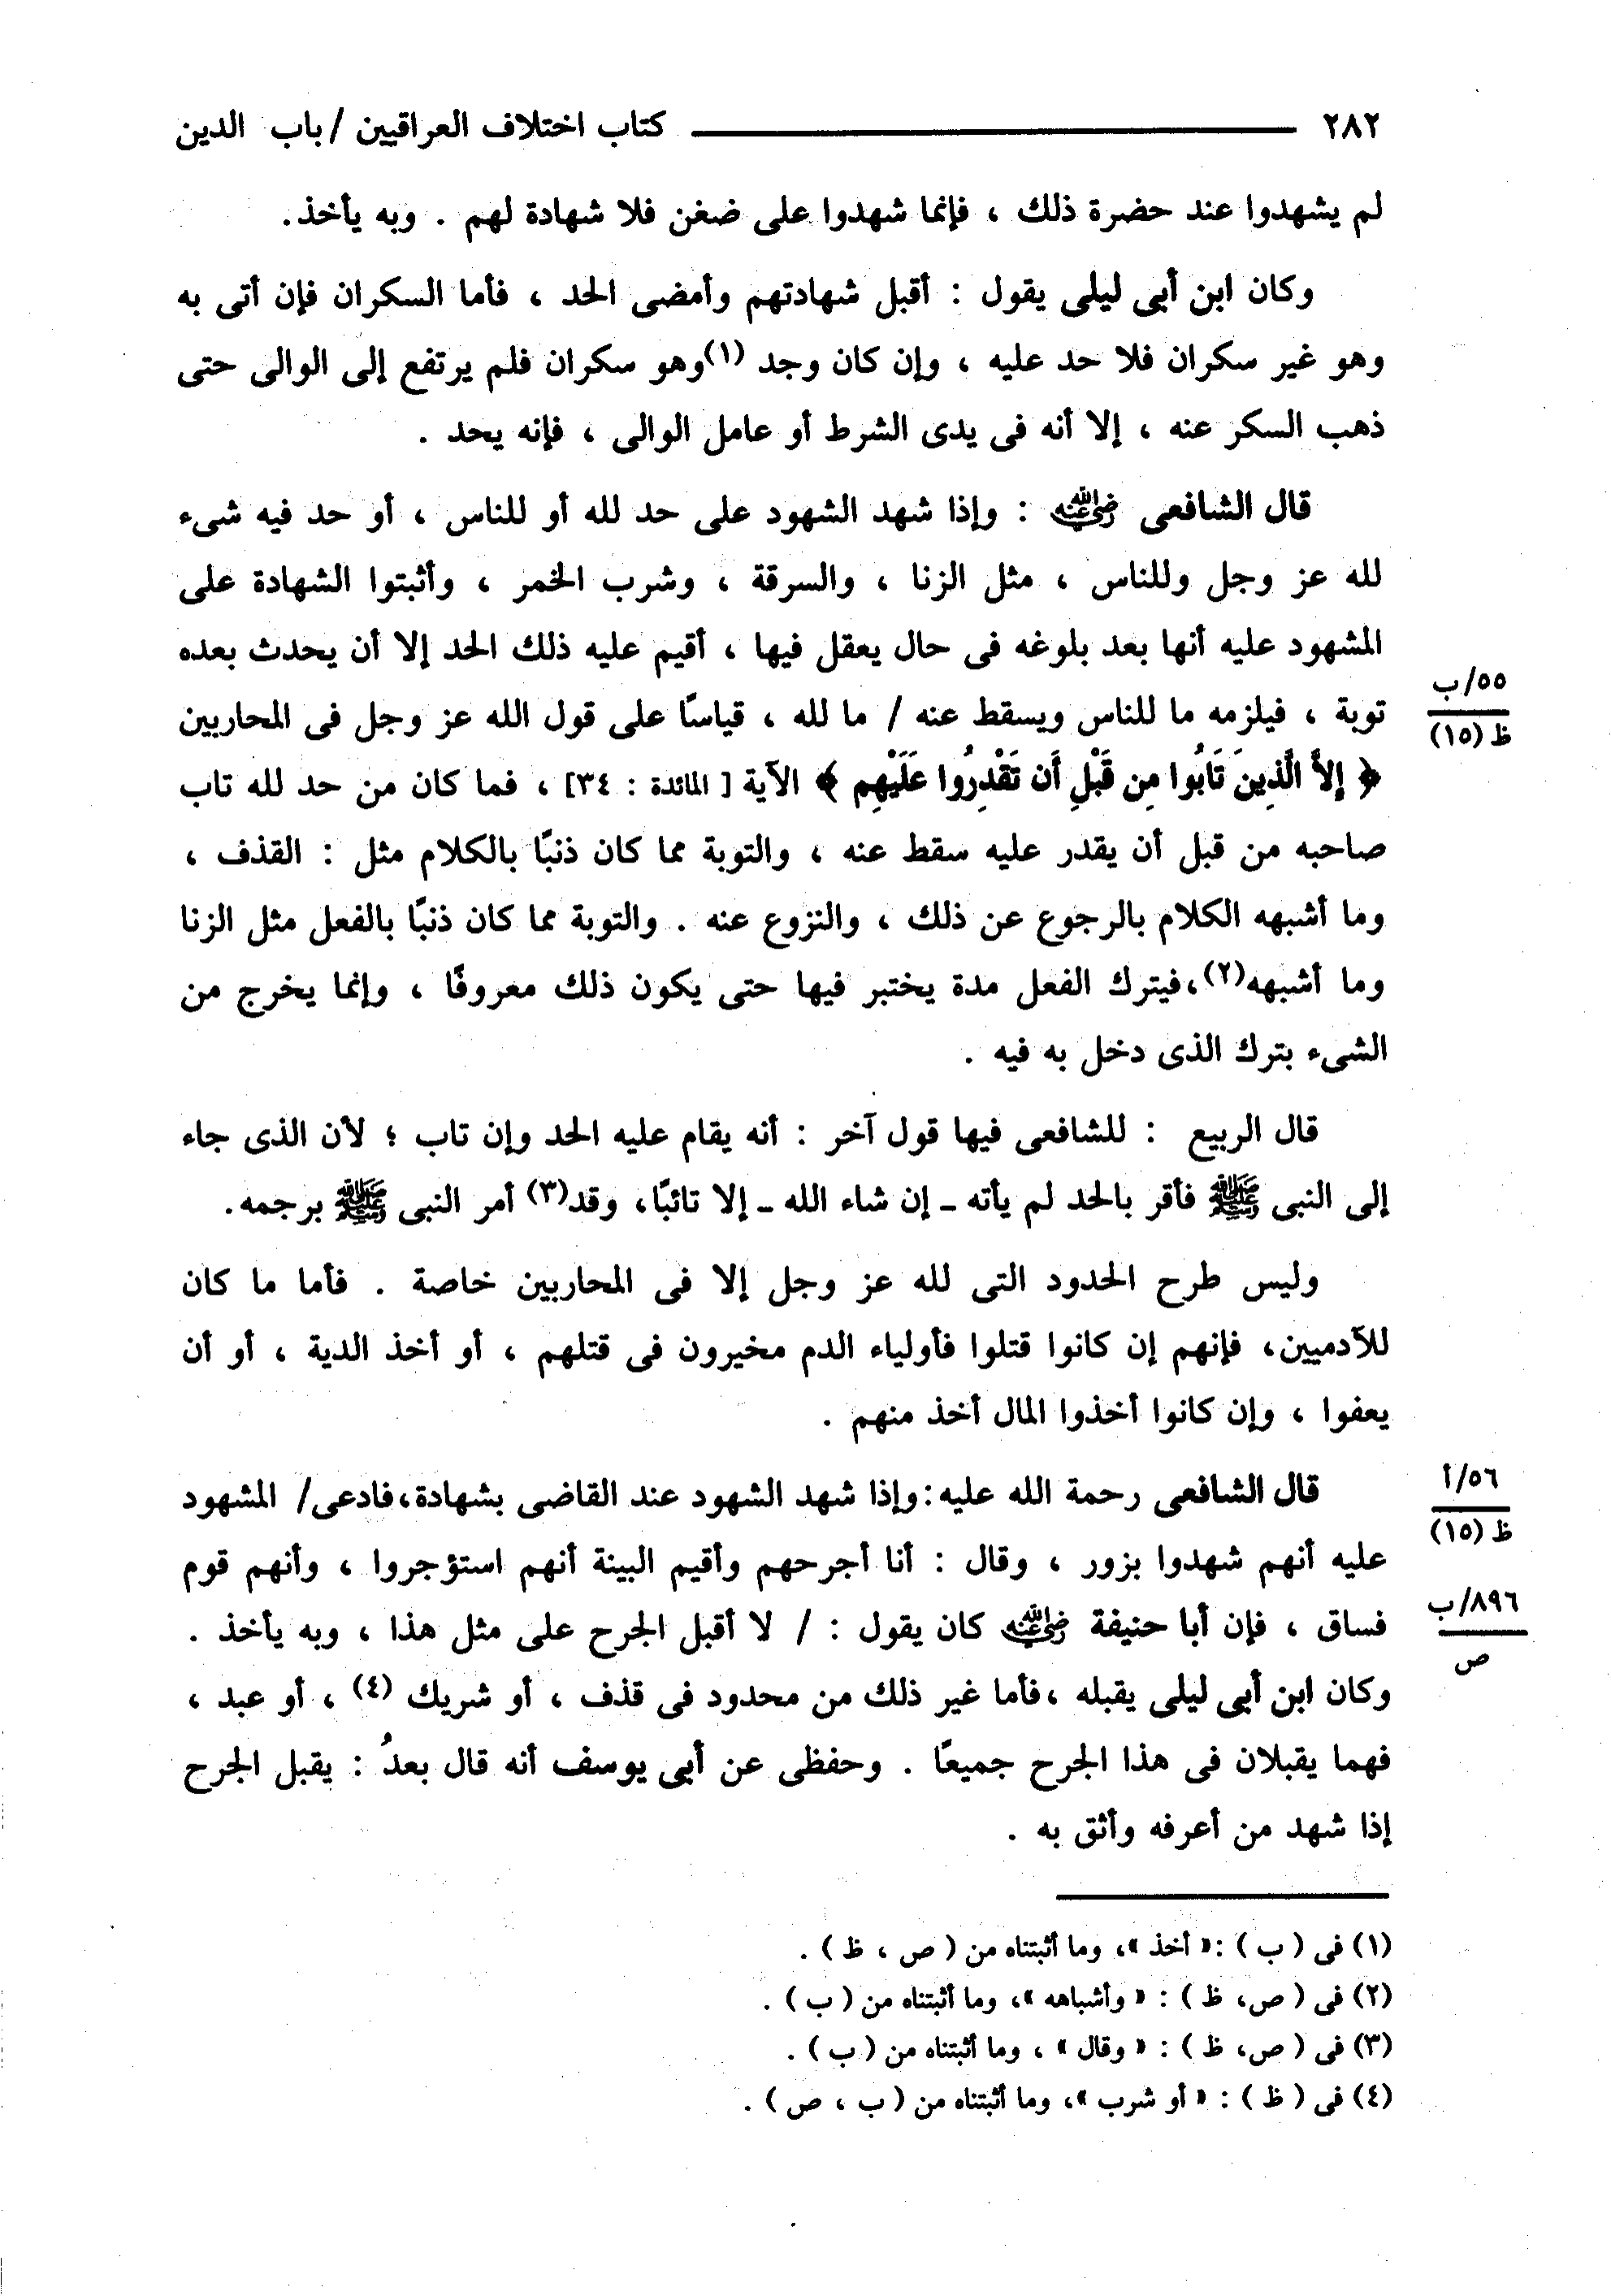 ٢٨٢ كتاب اختلاف العراقيين / باب الدين
لم يشهدوا عند حضرة ذلك ، فإنما شهدوا على ضغن فلا شهادة لهم . وبه يأخذ.
وكان ابن أبى ليلى يقول : أقبل شهادتهم وأمضى الحد ، فأما السكران فإن أتى به
وهو غير سكران فلا حد عليه ، وإن كان وجد (١)وهو سكران فلم يرتفع إلى الوالى حتى
ذهب السكر عنه ، إلا أنه فى يدى الشرط أو عامل الوالى ، فإنه يحد .
قال الشافعى رضي الله عنه : وإذا شهد الشهود على حد لله أو للناس ، أو حد فيه شىء
لله عز وجل وللناس ، مثل الزنا ، والسرقة ، وشرب الخمر ، وأثبتوا الشهادة على
المشهود عليه أنها بعد بلوغه فى حال يعقل فيها ، أقيم عليه ذلك الحد إلا أن يحدث بعده
٥٥/ب
توبة ، فيلزمه ما للناس ويسقط عنه / ما لله ، قياسًا على قول الله عز وجل فى المحاربين
ظ (١٥)
﴿ إِلاَّ الَّذِينَ تَابُوا مِن قَبْلِ أَن تَقْدِرُوا عَلَيْهِمْ ﴾ الآية [ المائدة : ٣٤] ، فما كان من حد لله تاب
صاحبه من قبل أن يقدر عليه سقط عنه ، والتوبة مما كان ذنبًا بالكلام مثل : القذف ،
وما أشبهه الكلام بالرجوع عن ذلك ، والنزوع عنه . والتوبة مما كان ذنبًا بالفعل مثل الزنا
وما أشبهه(٢)،فيترك الفعل مدة يختبر فيها حتى يكون ذلك معروفًا ، وإنما يخرج من
الشىء بترك الذى دخل به فيه .
قال الربيع : للشافعى فيها قول آخر : أنه يقام عليه الحد وإن تاب ؛ لأن الذى جاء
إلى النبى ﷺ فأقر بالحد لم يأته ـ إن شاء الله ـ إلا تائبًا، وقد(٣) أمر النبى ﷺ برجمه.
وليس طرح الحدود التى لله عز وجل إلا فى المحاربين خاصة . فأما ما كان
للآدميين، فإنهم إن كانوا قتلوا فأولياء الدم مخيرون فى قتلهم ، أو أخذ الدية ، أو أن
يعفوا ، وإن كانوا أخذوا المال أخذ منهم .
٥٦/أ
قال الشافعى رحمة الله عليه:وإذا شهد الشهود عند القاضى بشهادة،فادعى/ المشهود
ظ (١٥)
عليه أنهم شهدوا بزور ، وقال : أنا أجرحهم وأقيم البينة أنهم استؤجروا ، وأنهم قوم
٨٩٦/ب
فساق ، فإن أبا حنيفة رضي الله عنه كان يقول : / لا أقبل الجرح على مثل هذا ، وبه يأخذ .
ص
وكان ابن أبى ليلى يقبله ،فأما غير ذلك من محدود فى قذف ، أو شريك (٤) ، أو عبد ،
فهما يقبلان فى هذا الجرح جميعًا . وحفظى عن أبى يوسف أنه قال بعدُ : يقبل الجرح
إذا شهد من أعرفه وأثق به .
(١) فى ( ب ) :« أخذ »، وما أثبتناه من ( ص ، ظ ) .
(٢) فى ( ص، ظ ) : « وأشباهه »، وما أثبتناه من ( ب ) .
(٣) فى ( ص، ظ ) : « وقال » ، وما أثبتناه من ( ب ) .
(٤) فى ( ظ ) : « أو شرب »، وما أثبتناه من ( ب ، ص ) .